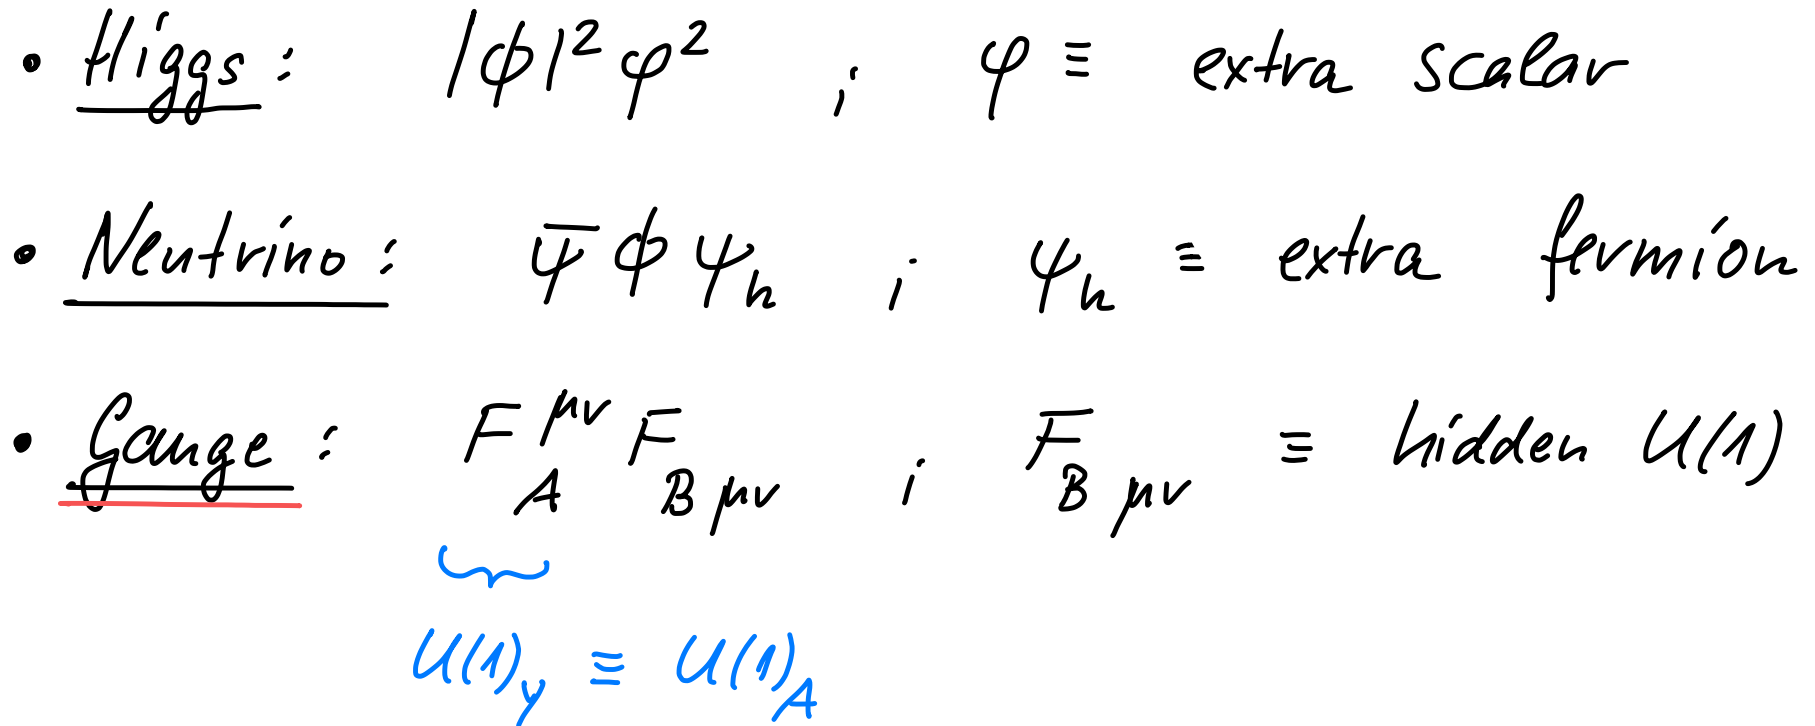 • Higgs : |ϕ|² φ² ; φ ≡ extra scalar
• Neutrino : ψ̄ ϕ ψ_h ; ψ_h ≡ extra fermion
• Gauge : F_A^{μν} F_{B μν} ; F_{B μν} ≡ hidden U(1)
U(1)_Y ≡ U(1)_A